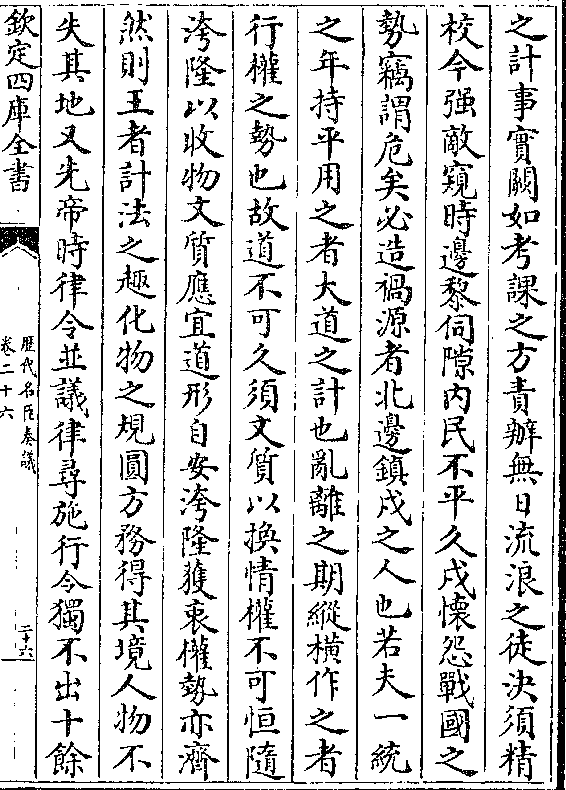 之計事實闕如考課之方責辦無日流浪之徒決須精
校今强敵窺時邊黎伺隙内民不平久戍懷怨戰國之
勢竊謂危矣必造禍源者北邊鎮戍之人也若夫一統
之年持平用之者大道之計也亂離之期縱横作之者
行權之勢也故道不可久須文質以換情權不可恒隨
洿隆以收物文質應宜道形自安洿隆獲衷權勢亦濟
然則王者計法之趣化物之規圓方務得其境人物不
失其地又先帝時律令並議律尋施行令獨不出十餘
欽定四庫全書
歴代名臣奏議
卷二十六
二十六